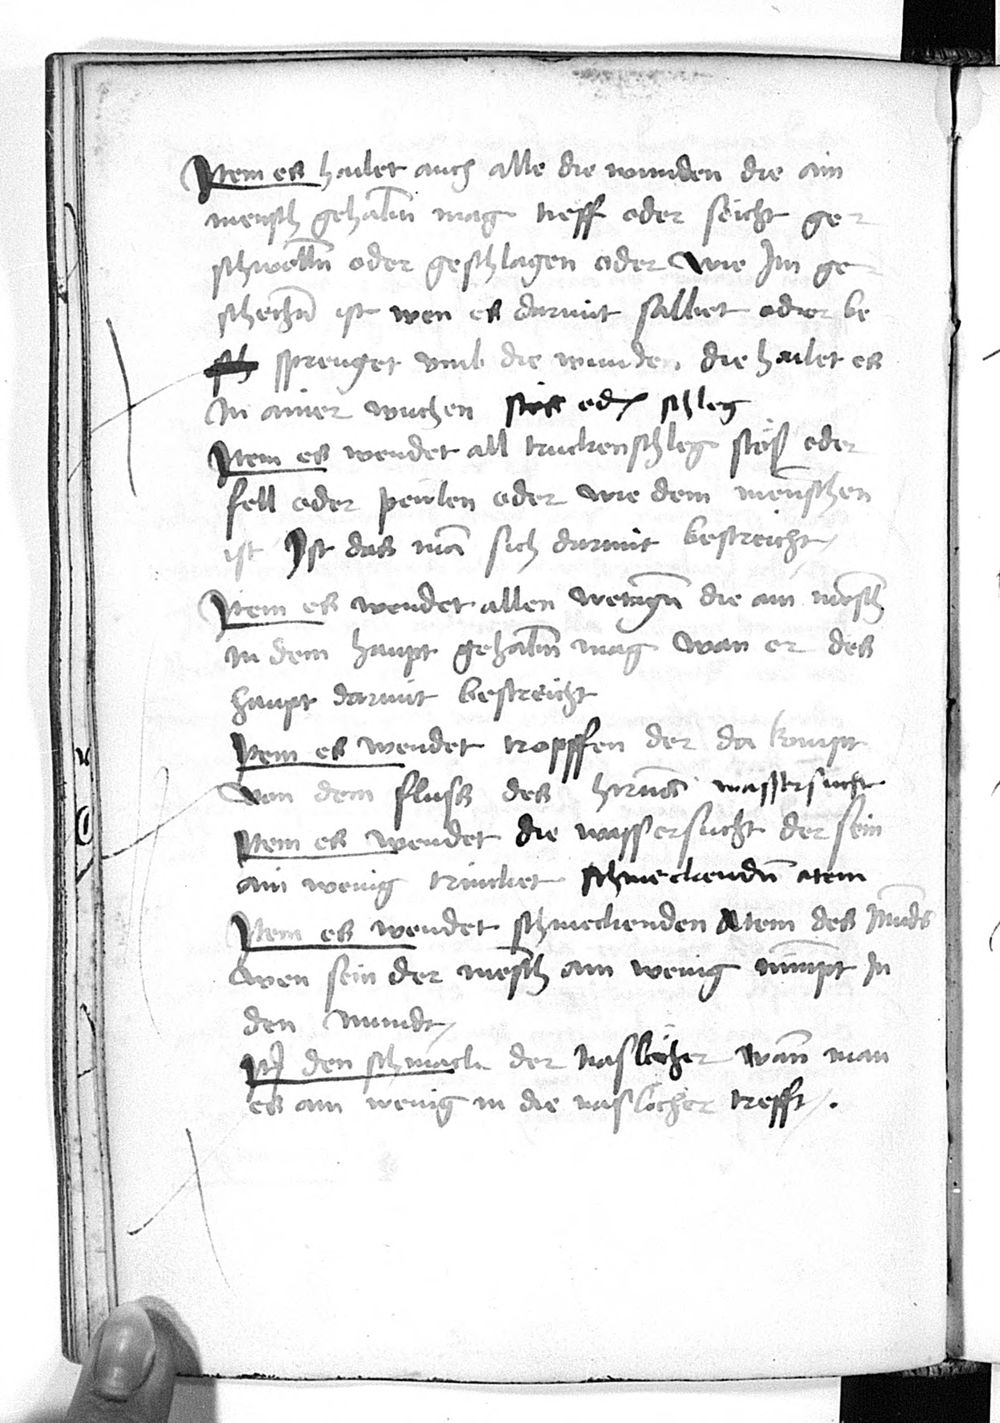 Item es hailet auch alle die wunden die ain
mensch gehabn̄ mag tieff oder seicht ge
schwolln̄ oder geschlagen oder wie Im ge
schechn̄ ist wen es darmit salbet oder be
sprenget vmb die wunden die hailet es
In ainer wuchen stöss od schleg
Item es wendet all truckenschleg stöß oder
fell oder peulen oder wie dem menschen
ist Ist das mā sich darmit bestreicht
Item es wendet allen wetagn̄ die ain mēsch
in dem haupt gehabn̄ mag wan er des
haupt darmit bestreicht
Item es wendet tropffen der da kompt
von dem fluss des hirnis wassersucht
Item es wendet die wassersucht der sein
ain wenig trincket schmeckendn̄ atem
Item es wendet schmeckenden Atem des munds
wen sein der mēsch ain wenig nimpt In
den mundt
It den schmack der naslöcher wan̄ man
es ain wenig in die naslöcher trefft.